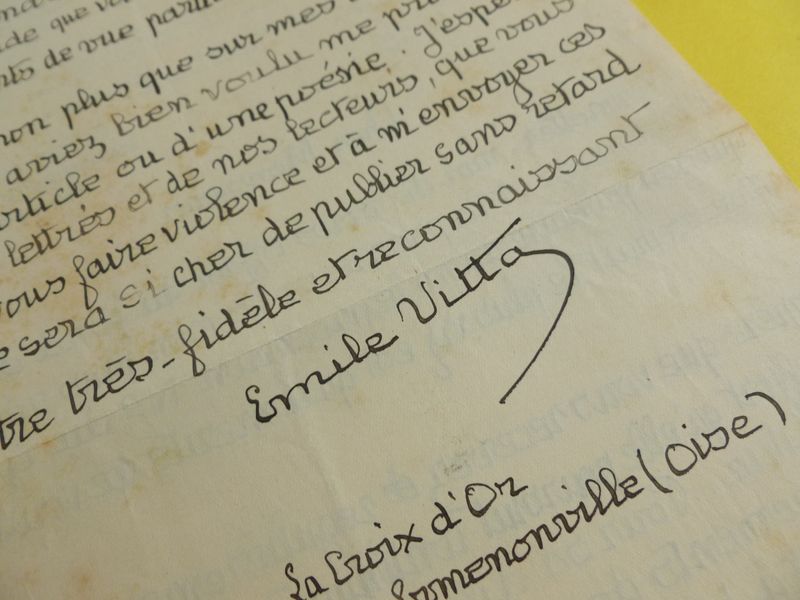 de que vo
nts de vue parti
non plus que sur mes
aviez bien voulu me pro
article ou d'une poésie. J'espè
lettrés et de nos lecteurs, que vous
vous faire violence et à m'envoyer ces
e sera si cher de publier sans retard
tre très-fidèle et reconnaissant
Emile Vitta
La Croix d'Or
Ermenonville (Oise)